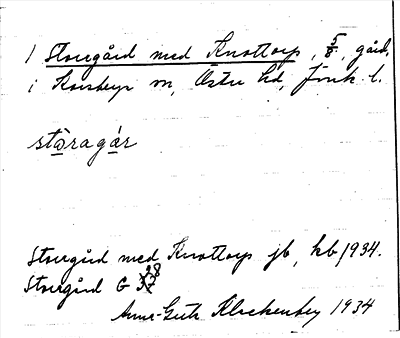 1 Storegård med Knottorp, 5/8, gård,
i Korsberga sn, Östra hd, Jönk. l.
stòragár
Storegård med Knottorp jb, kb 1934.
Storegård G 28 37
Anna-Greta Klockenbey 1934